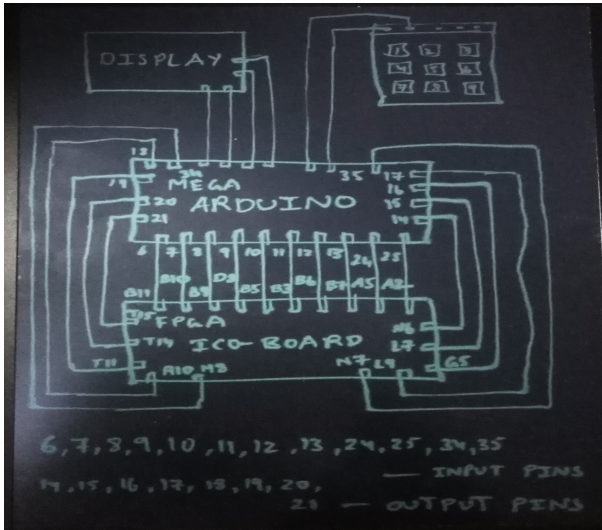 DISPLAY
1 2 3
4 5 6
7 8 9
18 34 35 17
19 MEGA 16
20 ARDUINO 15
21 14
6 7 8 9 10 11 12 13 24 25
B11 B10 B9 D8 B5 B3 B6 B7 A5 A2
T15 FPGA M6
T14 ICO-BOARD L7
T11 A10 M8 N7 L9 G5
6,7,8,9,10,11,12,13,24,25,34,35
— INPUT PINS
14,15,16,17,18,19,20,
21 — OUTPUT PINS